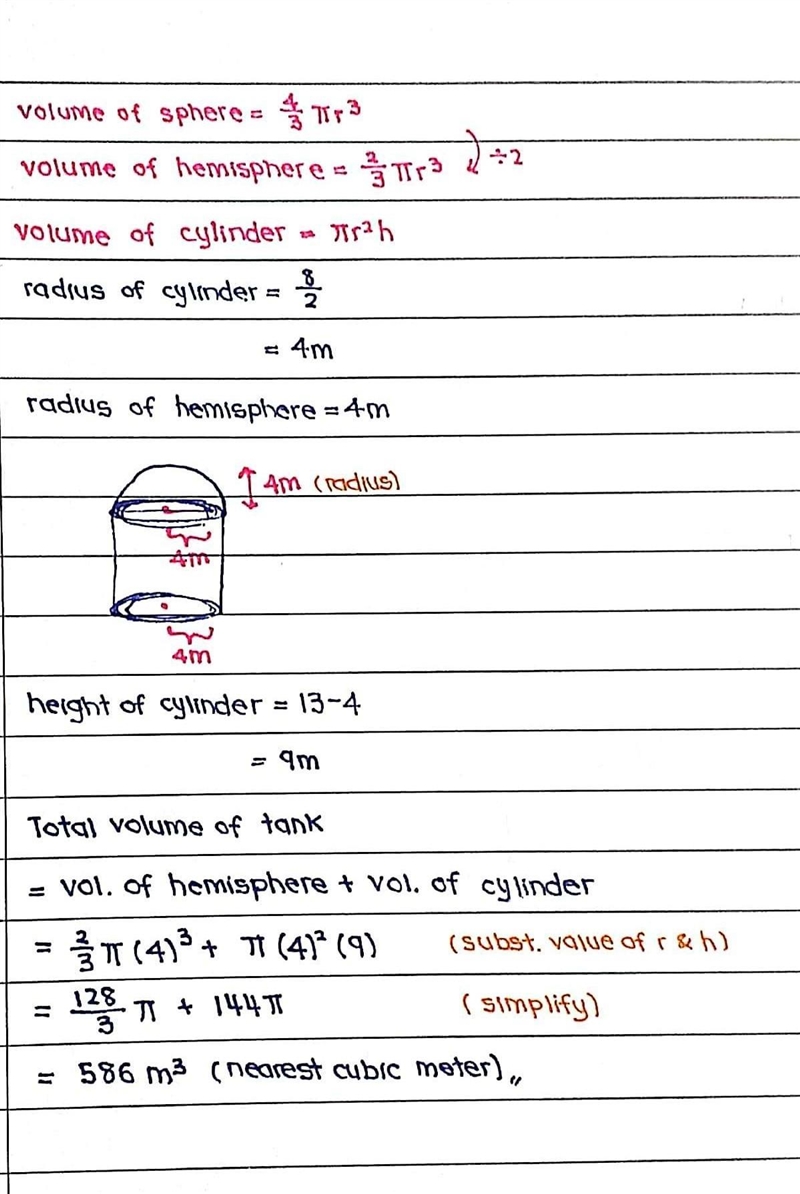 volume of sphere = 4/3 πr³
volume of hemisphere = 2/3 πr³ ÷2
volume of cylinder = πr²h
radius of cylinder = 8/2
= 4m
radius of hemisphere = 4m
4m (radius)
4m
4m
height of cylinder = 13-4
= 9m
Total volume of tank
= vol. of hemisphere + vol. of cylinder
= 2/3 π (4)³ + π (4)² (9) (subst. value of r & h)
= 128/3 π + 144π (simplify)
= 586 m³ (nearest cubic meter)〃